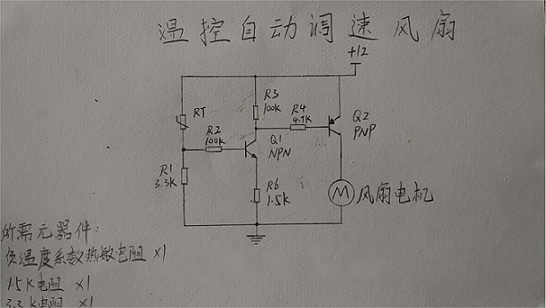 温控自动调速风扇
+12
R3
100K
RT
R4
4.7K
Q2
PNP
R2
100K
Q1
NPN
R1
3.3K
R6
1.5K
M
风扇电机
所需元器件:
负温度系数热敏电阻 X1
1.5K电阻 X1
3.3K电阻 X1